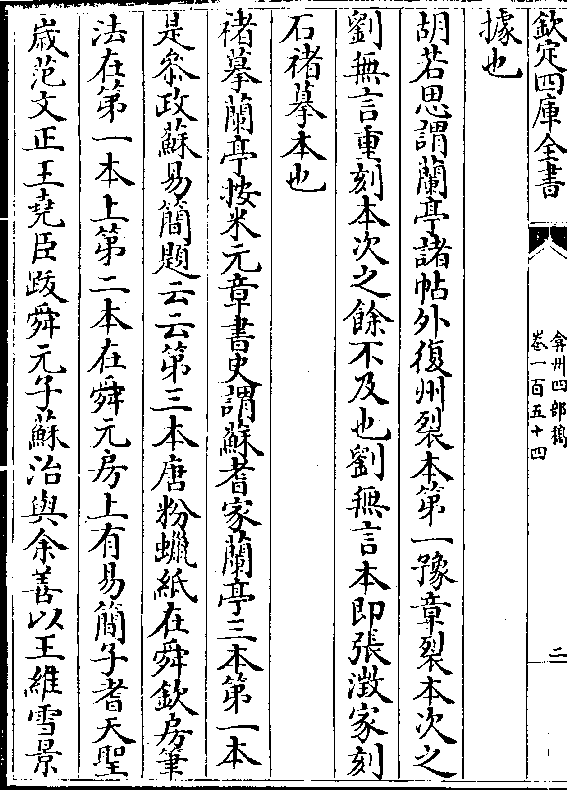 欽定四庫全書
弇州四部稿
卷一百五十四
二
據也
胡若思謂蘭亭諸帖外復州裂本第一豫章裂本次之
劉無言重刻本次之餘不及也劉無言本即張澂家刻
石褚摹本也
褚摹蘭亭按米元章書史謂蘇耆家蘭亭三本第一本
是叅政蘇易簡題云云第三本唐粉蠟紙在舜欽房筆
法在第一本上第二本在舜元房上有易簡子耆天聖
嵗范文正王堯臣跋舜元子蘇治與余善以王維雪景